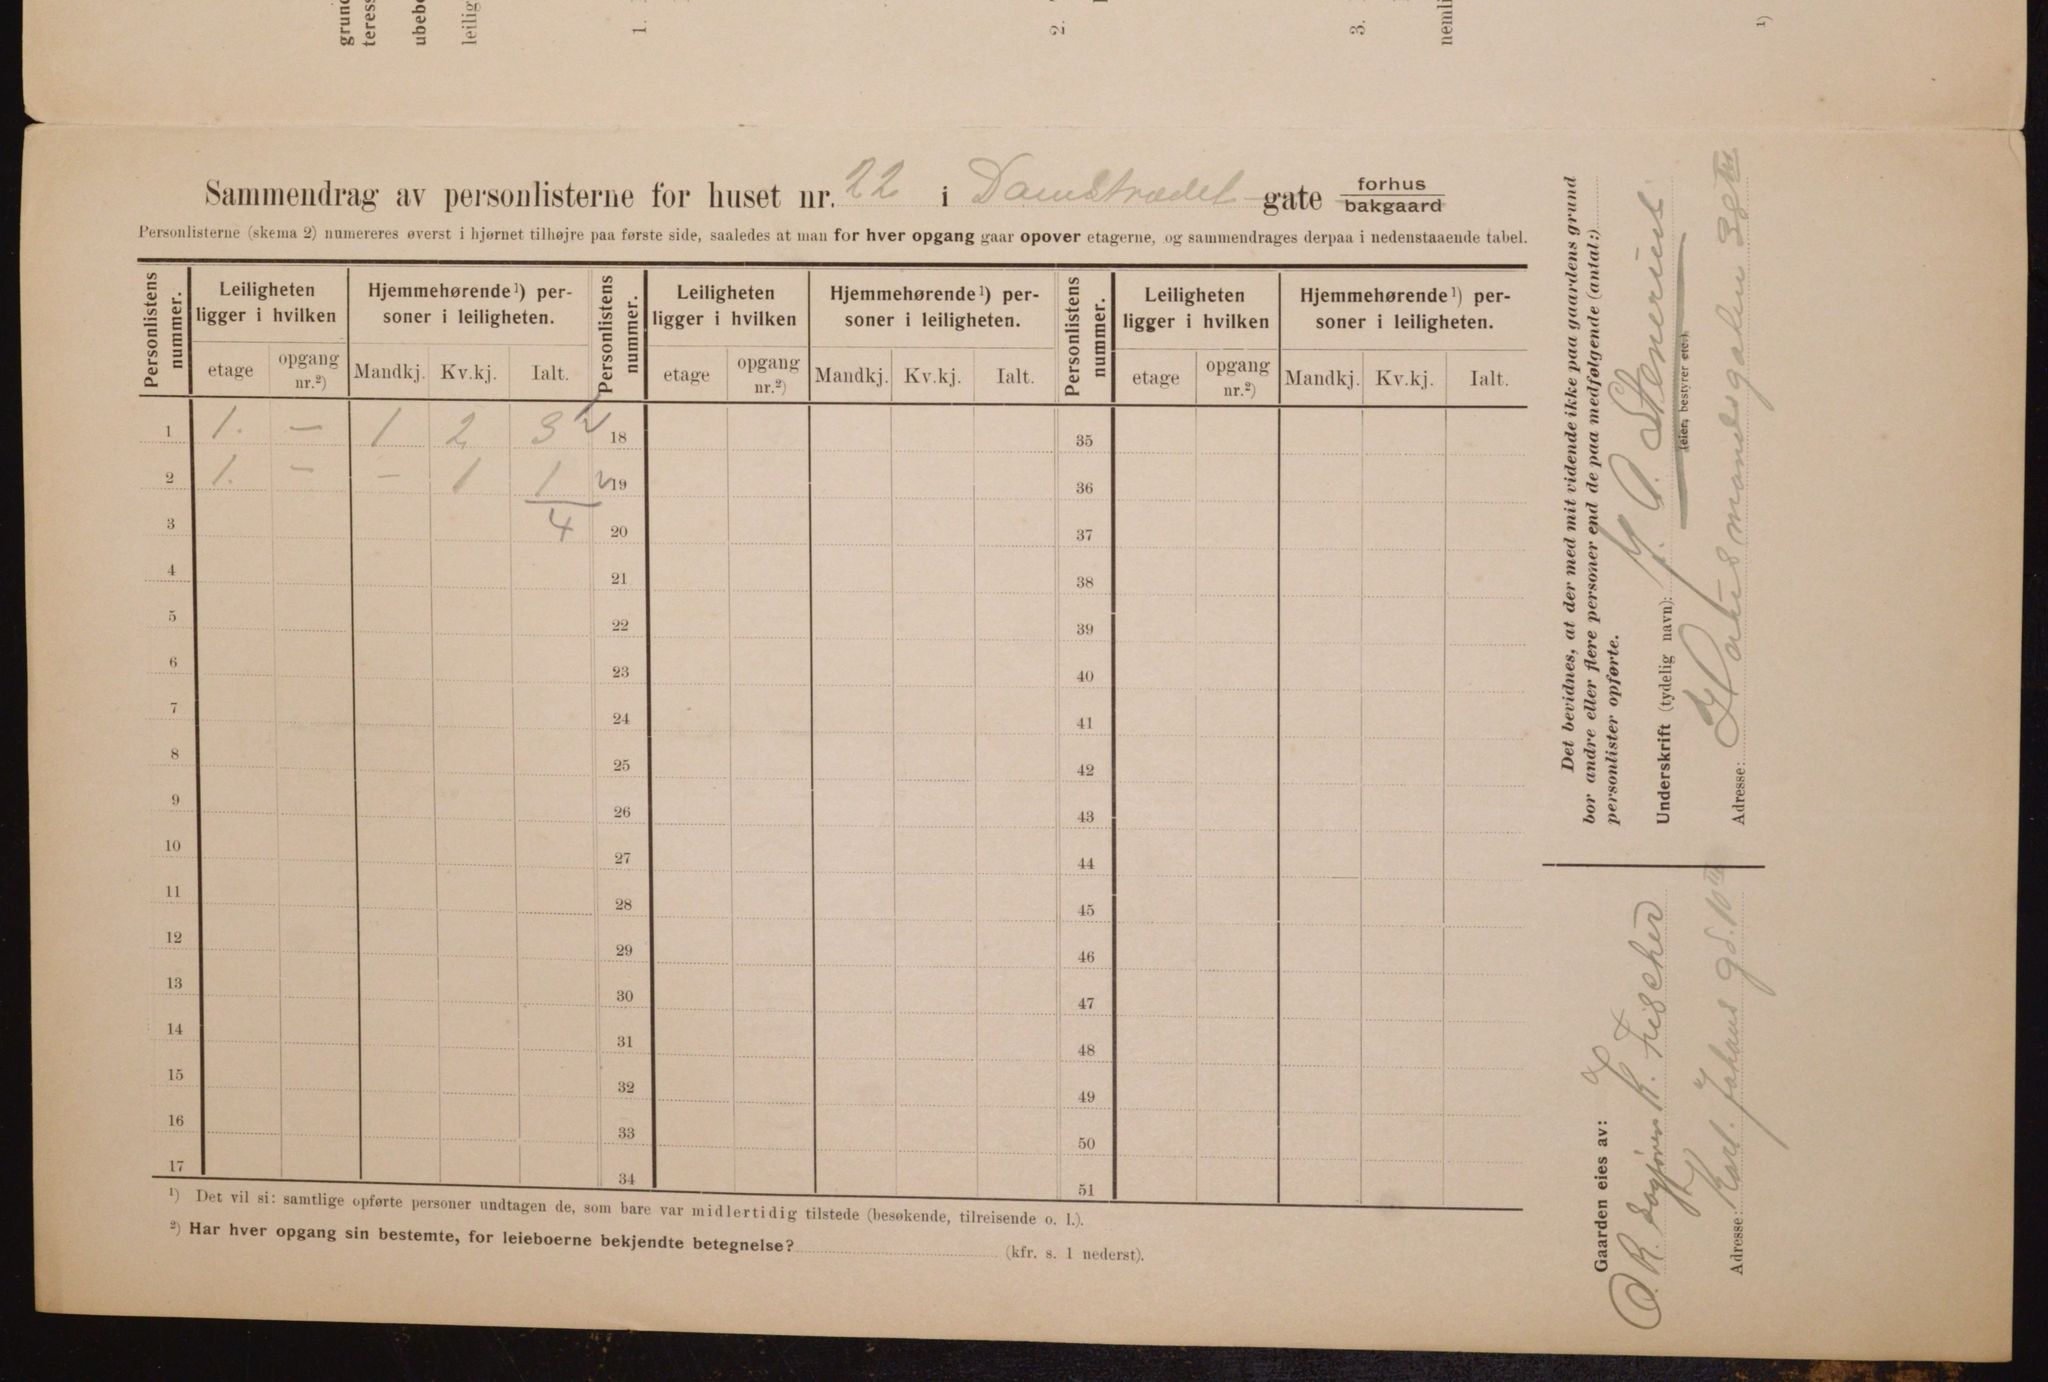 grund
teress
ubebo
leilig
1.
2.
3.
nemli
1)
Sammendrag av personlisterne for huset nr. 22 i Damstrædet gate forhus
bakgaard
Personlisterne (skema 2) numereres øverst i hjørnet tilhøjre paa første side, saaledes at man for hver opgang gaar opover etagerne, og sammendrages derpaa i nedenstaaende tabel.
Personlistens nummer. Leiligheten ligger i hvilken Hjemmehørende 1) personer i leiligheten. Personlistens nummer. Leiligheten ligger i hvilken Hjemmehørende 1) personer i leiligheten. Personlistens nummer. Leiligheten ligger i hvilken Hjemmehørende 1) personer i leiligheten.
etage opgang nr.2) Mandkj. Kv.kj. Ialt. etage opgang nr.2) Mandkj. Kv.kj. Ialt. etage opgang nr.2) Mandkj. Kv.kj. Ialt.
1 1. — 1 2 3 18 35
2 1. — — 1 1 19 36
3 4 20 37
4 21 38
5 22 39
6 23 40
7 24 41
8 25 42
9 26 43
10 27 44
11 28 45
12 29 46
13 30 47
14 31 48
15 32 49
16 33 50
17 34 51
1) Det vil si: samtlige opførte personer undtagen de, som bare var midlertidig tilstede (besøkende, tilreisende o. l.).
2) Har hver opgang sin bestemte, for leieboerne bekjendte betegnelse? (kfr. s. 1 nederst).
Det bevidnes, at der med mit vidende ikke paa gaardens grund
bor andre eller flere personer end de paa medfølgende (antal:)
personlister opførte.
Underskrift (tydelig navn):
(eier, bestyrer etc.).
Adresse: 38
Gaarden eies av:
K. Fischer
Adresse: Karl Johans gd. 10